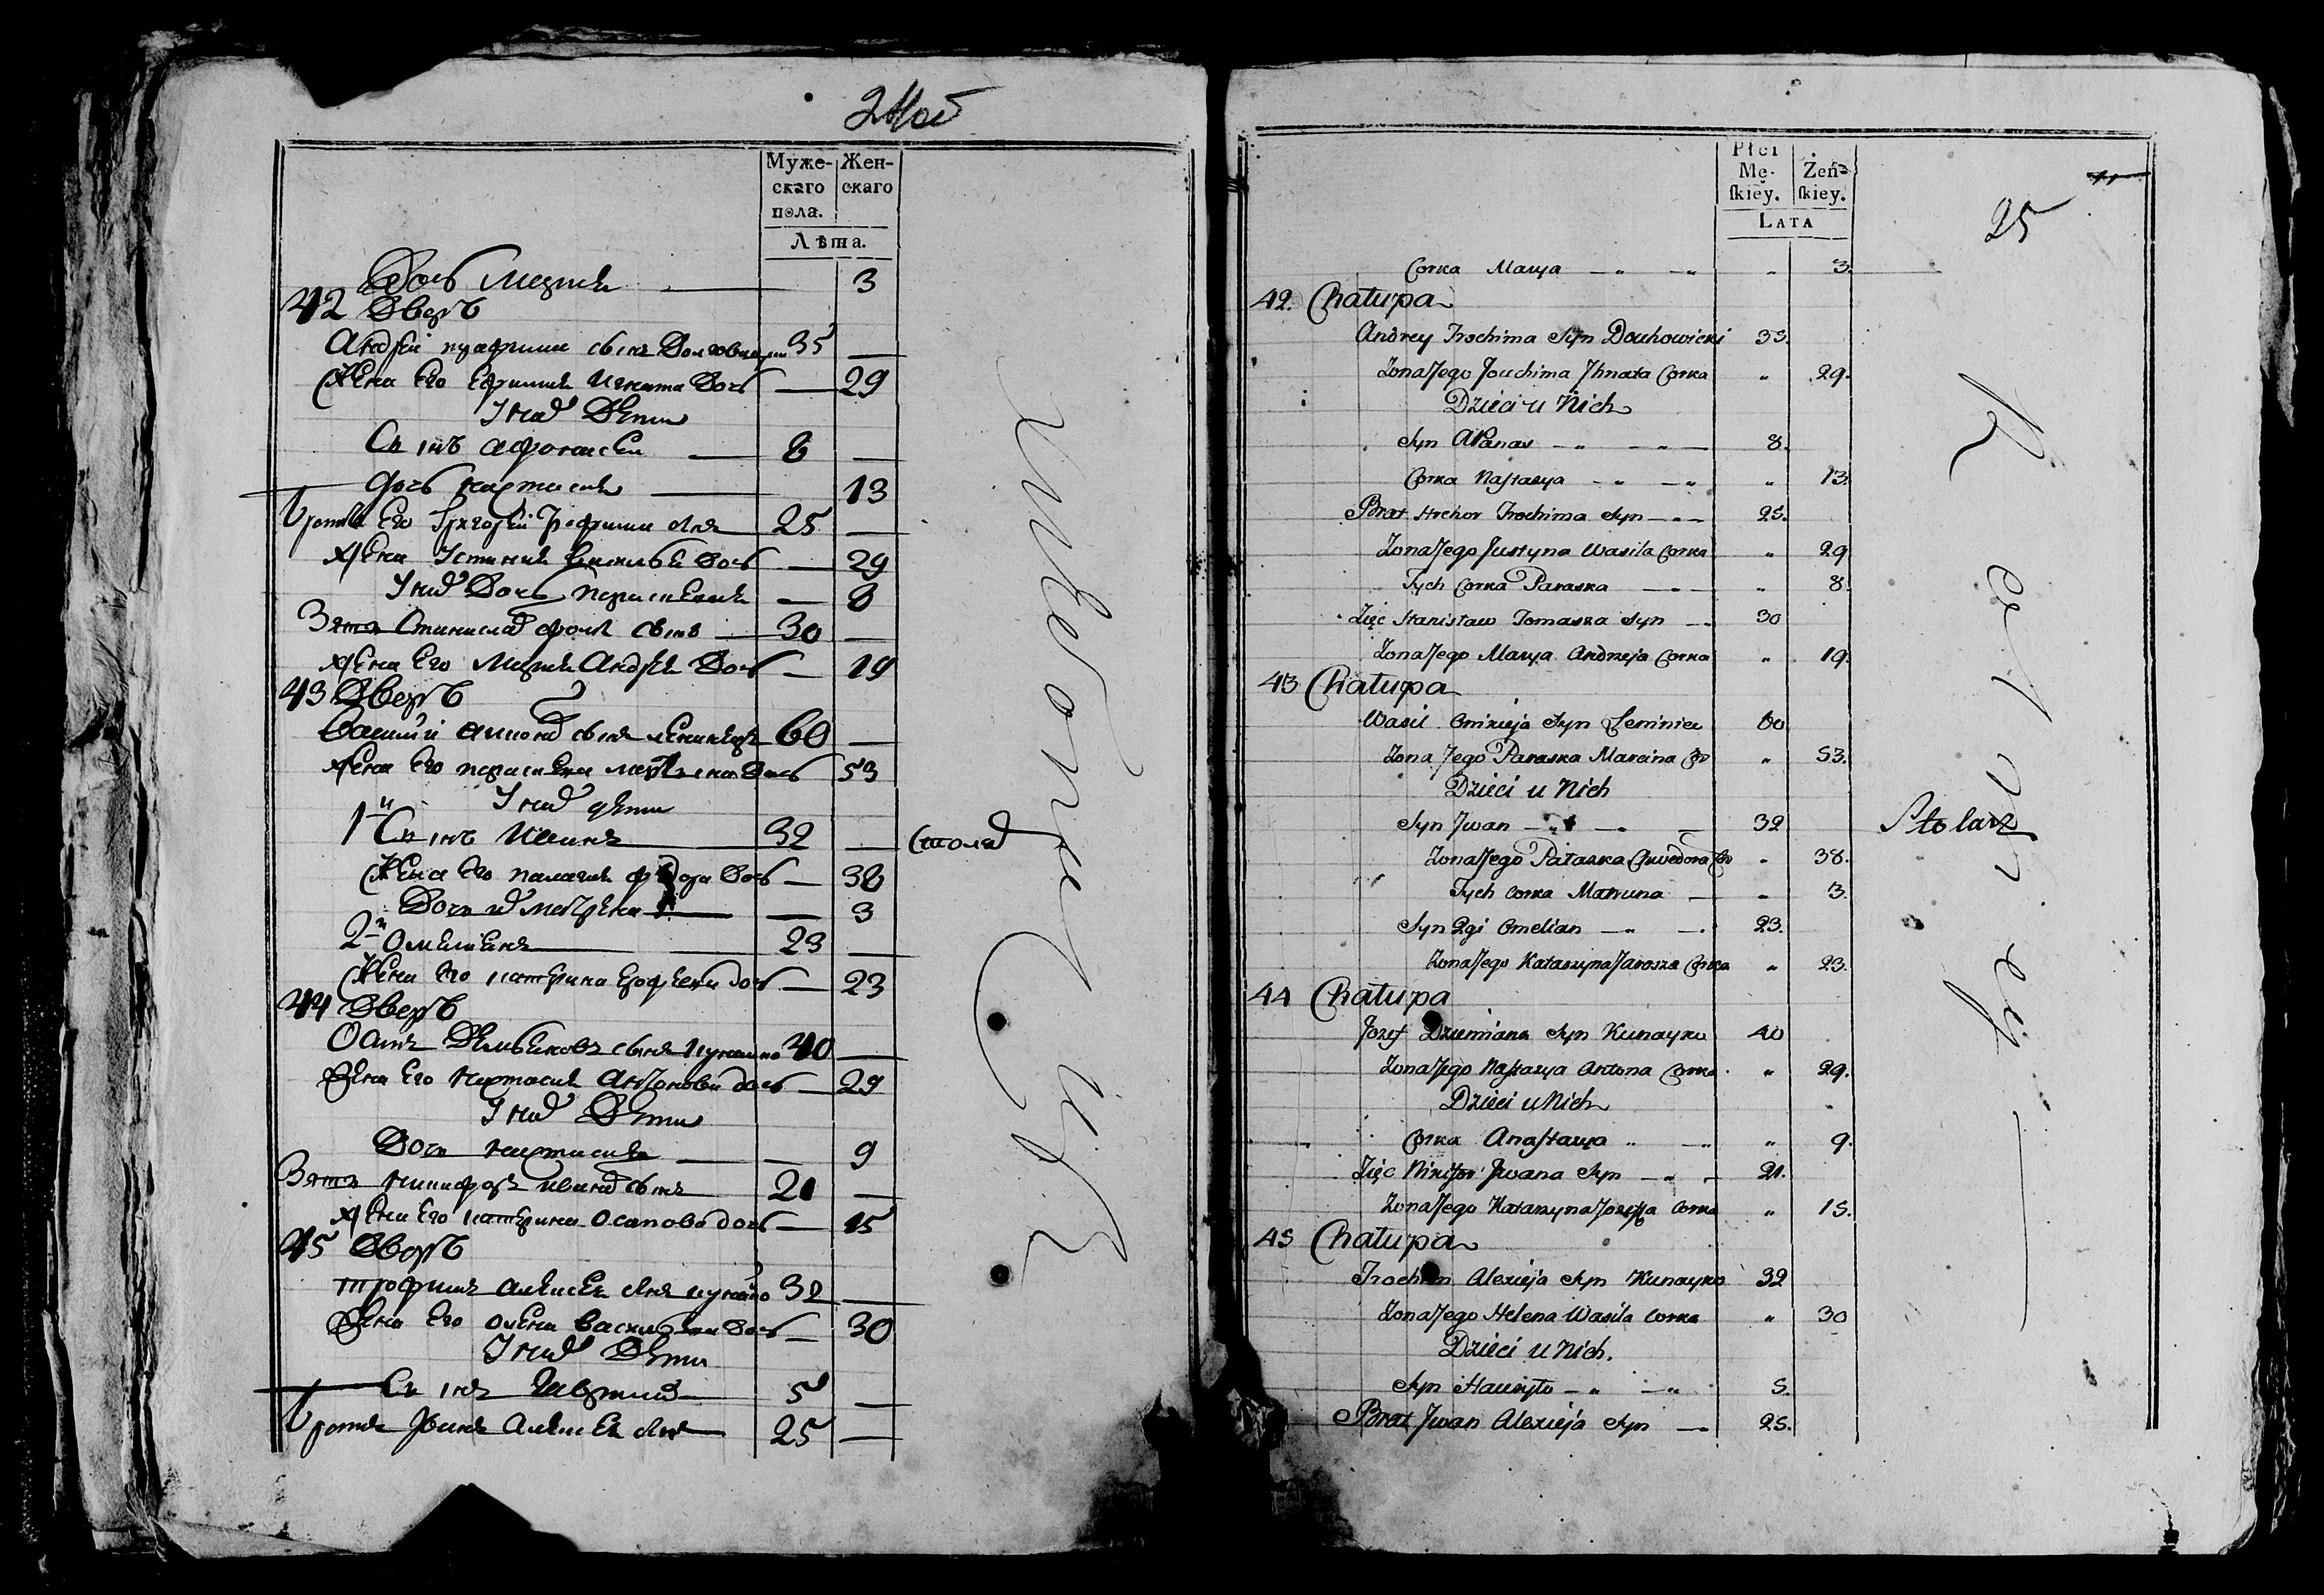 Муже-
скаго
пола.
Жен-
скаго
Лѣта.
Дочь Марья 3
42 Дворъ
Андрей Трофима сынъ 35
Жена Его Игната Дочь 29
У них Дети
Сынъ Афонасей 8
Дочь Настасья 13
Братъ Его Григорей Трофима сынъ 25
Жена Устинья Василья Дочь 29
У них Дочь Параскевья 8
Зять Станислав Фомы сынъ 30
Жена Его Марья Андрея Дочь 19
43 Дворъ
Василий сынъ 60
Жена Его Параскева Дочь 53
У них дети
1й Сынъ Иванъ 32 Столяр
Жена Его Палагея Федора Дочь 38
Дочь их Матрена 3
2й Омельянъ 23
Жена Его Катерина дочь 23
44 Дворъ
Осипъ сынъ Кунайко 40
Жена Его Настасья Антонова дочь 29
У них Дети
Дочь Настасья 9
Зять Никифоръ Ивана сынъ 21
Жена Его Катерина Осипова дочь 15
45 Дворъ
Трофимъ Алексея сынъ Кунайко 32
Жена Его Олена Васильева Дочь 30
У них Дети
Сынъ 5
Братъ Иванъ Алексея сынъ 25
Płci
Mę-
ſkiey.
Żeń-
ſkiey.
LATA
25
Corka Marya — „ — „ „ 3.
42. Chałupa
Andrey Trochima Syn Douhowicki 35.
Żona Jego Jouchima Jhnata Corka „ 29.
Dzieci u Nich
Syn Afanas — „ — „ — 8.
Corka Nastazya — „ — „ „ 13.
Brat Hrehor Trochima Syn — „ — 25.
Żona Jego Justyna Wasila Corka „ 29
Tych Corka Paraska — „ — „ 8.
Zięc Stanisław Tomasza Syn — „ 30
Żona Jego Marya Andrzeja Corka „ 19.
43 Chałupa
Wasil Syn 60
Żona Jego Paraska Marcina Co „ 53.
Dzieci u Nich
Syn Jwan — „ — „ — 32 Stolarz
Żona Jego Chwedora Co „ 38.
Tych Corka Matruna — „ 3.
Syn 2gi Omelian — „ — . 23.
Żona Jego Katarzyna Jarosza Corka „ 23.
44 Chałupa
Jozef Dziemiana Syn Kunayko 40
Żona Jego Nastazya Antona Corka „ 29.
Dzieci u Nich
Corka Anastazya „ — „ „ 9.
Zięc Nikifor Jwana Syn — „ — 21.
Żona Jego Katarzyna Jozefa Corka „ 15.
45 Chałupa
Trochim Alexieja Syn Kunayko 32
Żona Jego Helena Wasila Corka „ 30
Dzieci u Nich.
Syn Hauryło — „ — „ 5.
Brat Jwan Alexieja Syn — 25.